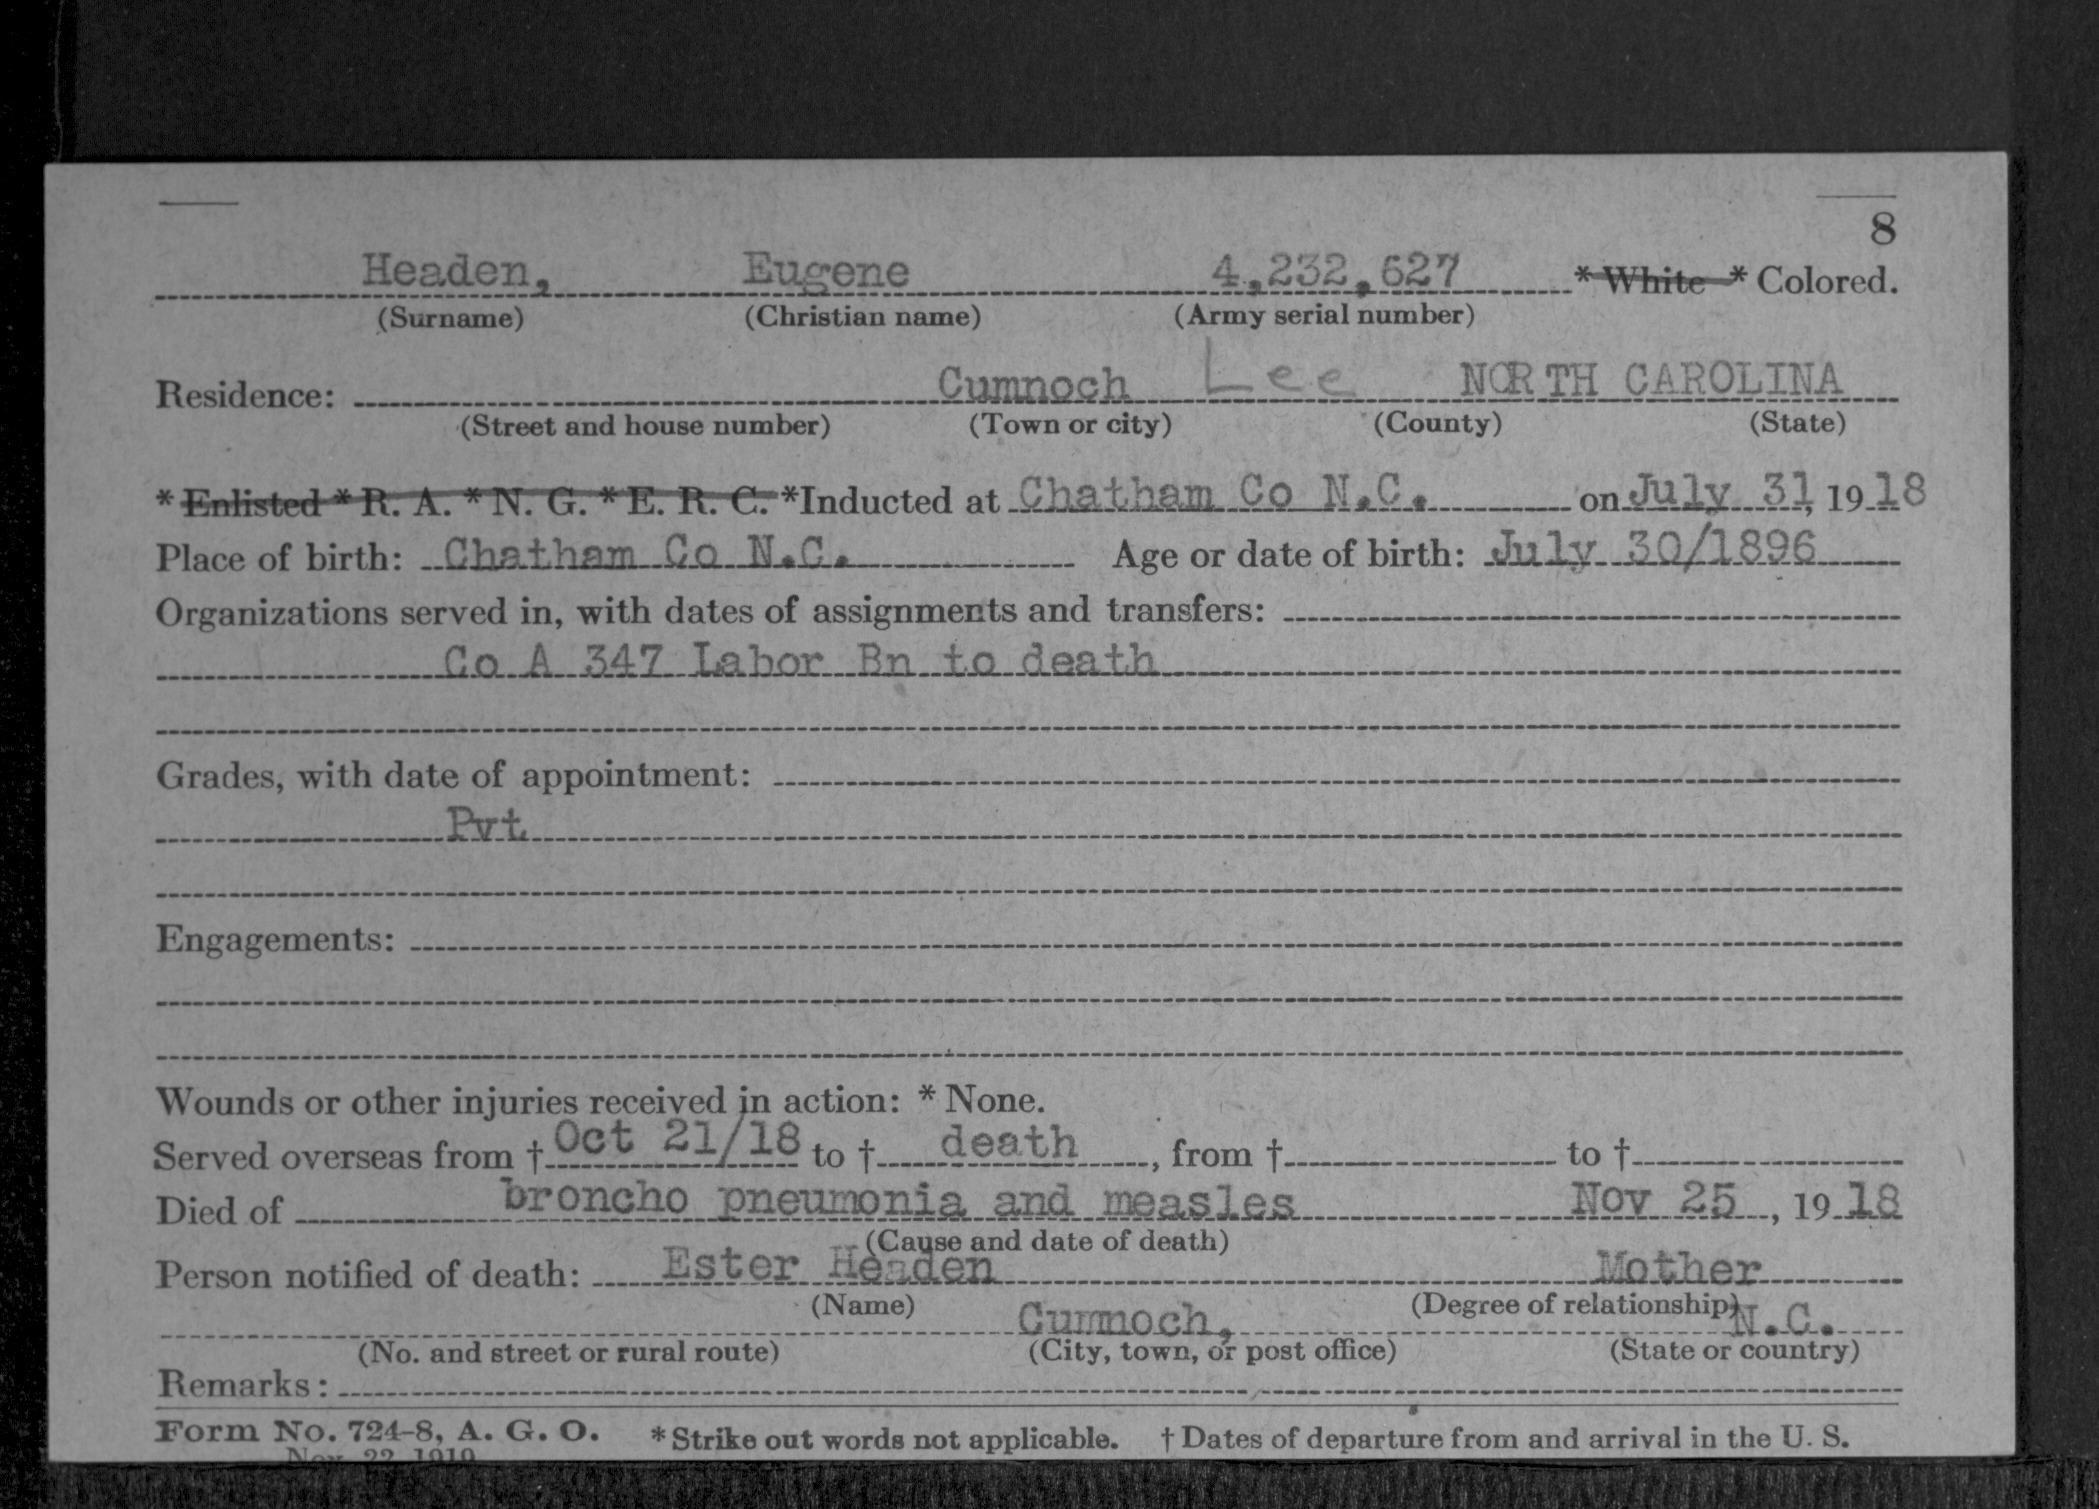 8
Headen, Eugene 4,232,627 * White * Colored.
(Surname) (Christian name) (Army serial number)
Cumnoch Lee NORTH CAROLINA
Residence:
(Street and house number) (Town or city) (County) (State)
* Enlisted * R. A. * N. G. * E. R. C. *Inducted at Chatham Co N.C. on July 31, 1918
Place of birth: Chatham Co N.C. Age or date of birth: July 30/1896
Organizations served in, with dates of assignments and transfers:
Co A 347 Labor Bn to death
Grades, with date of appointment:
Pvt
Engagements:
Wounds or other injuries received in action: * None.
Served overseas from † Oct 21/18 to † death, from † to †
Died of broncho pneumonia and measles Nov 25, 1918
(Cause and date of death)
Person notified of death: Ester Headen Mother
(Name) (Degree of relationship)
Cumnoch, N.C.
(No. and street or rural route) (City, town, or post office) (State or country)
Remarks:
Form No. 724-8, A. G. O. * Strike out words not applicable. † Dates of departure from and arrival in the U. S.
Nov 22 1919